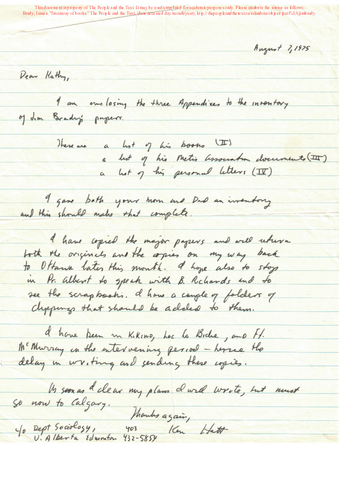 August 7, 1975
Dear Kathy,
I am enclosing the three Appendices to the inventory
of Jim Brady's papers.
There are a list of his books (II)
a list of his Metis Association documents (III)
a list of his personal letters (IV)
I gave both your Mom and Dad an inventory
and this should make that complete.
I have copied the major papers and will return
both the originals and the copies on my way back
to Ottawa later this month. I hope also to stop
in Pr. Albert to speak with B. Richards and to
see the scrapbooks. I have a couple of folders of
clippings that should be added to them.
I have been in Kikino, Lac la Biche, and Ft.
McMurray in the intervening period - hence the
delay in writing and sending these copies.
As soon as I clear my plans I will write, but must
go now to Calgary.
Thanks again,
Ken Hatt
c/o Dept Sociology, 403
U. Alberta Edmonton 432-5854